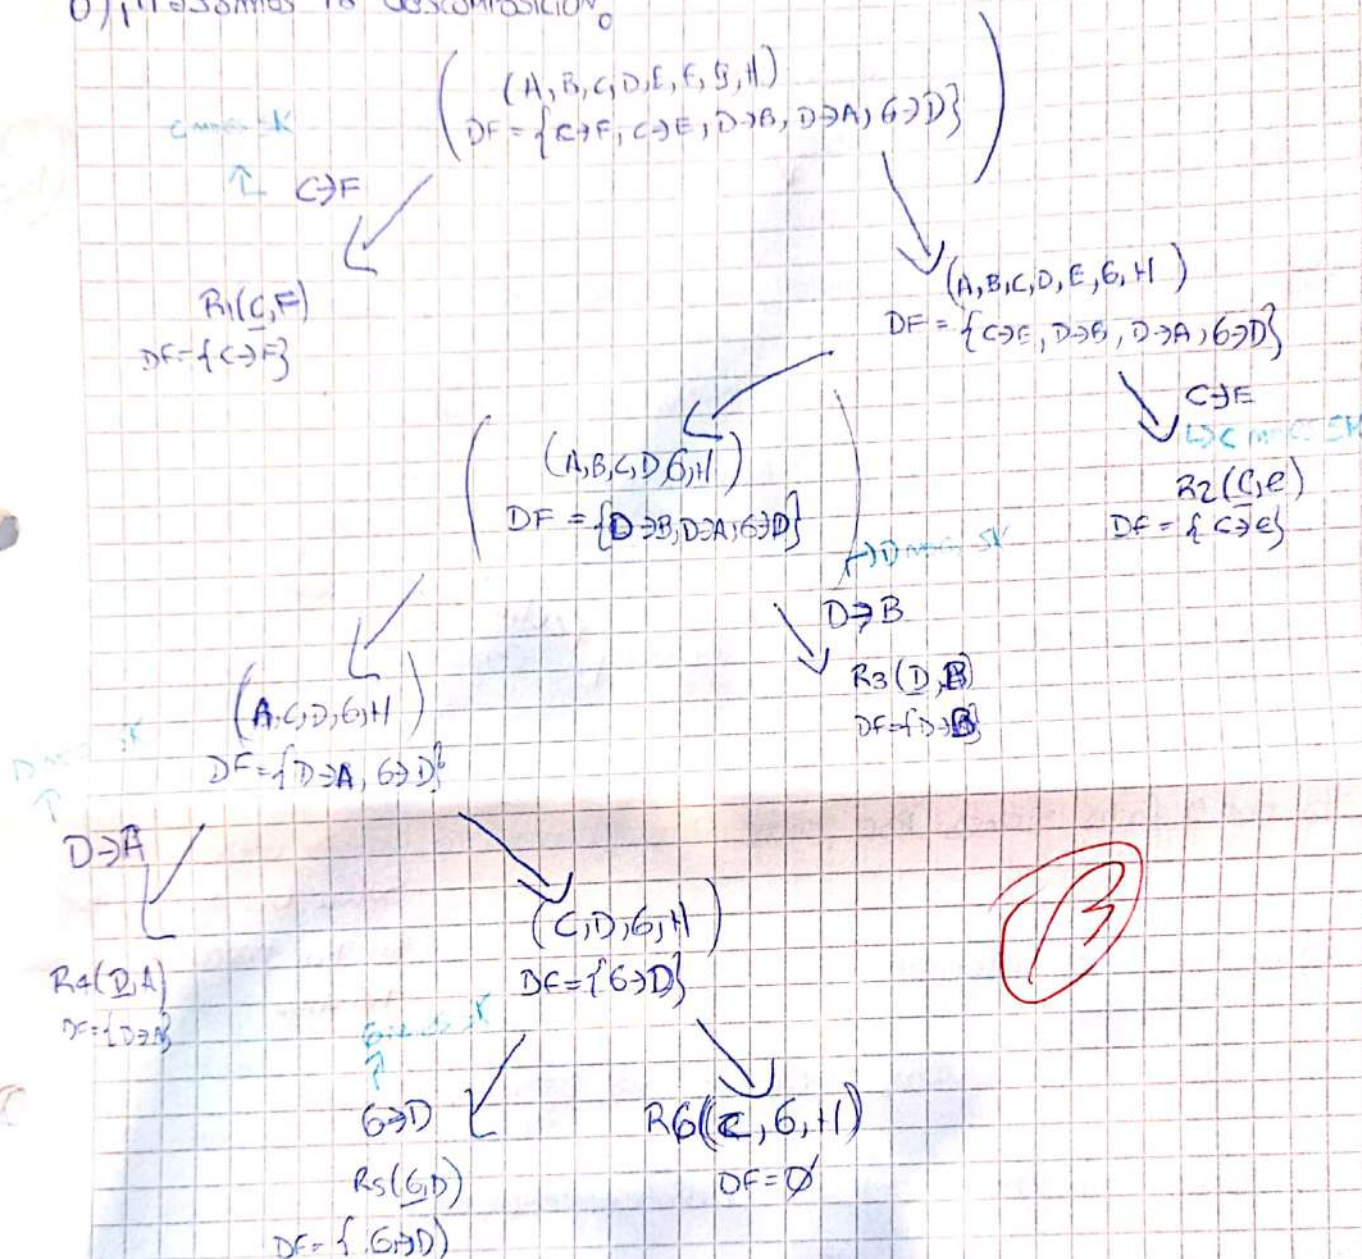 la descomposición
(A, B, C, D, E, F, G, H)
DF = {C→F, C→E, D→B, D→A, G→D}
SK
C→F
R1(C,F)
DF={C→F}
(A,B,C,D,E,G,H)
DF = {C→E, D→B, D→A, G→D}
C→E
R2(C,e)
DF = {C→E}
(A,B,C,D,G,H)
DF = {D→B, D→A, G→D}
SK
D→B
R3(D,B)
DF={D→B}
(A,C,D,G,H)
DF={D→A, G→D}
D→A
R4(D,A)
DF={D→A}
(C,D,G,H)
DF={G→D}
G→D
R5(G,D)
DF={G→D}
R6(C,G,H)
DF=Ø
B